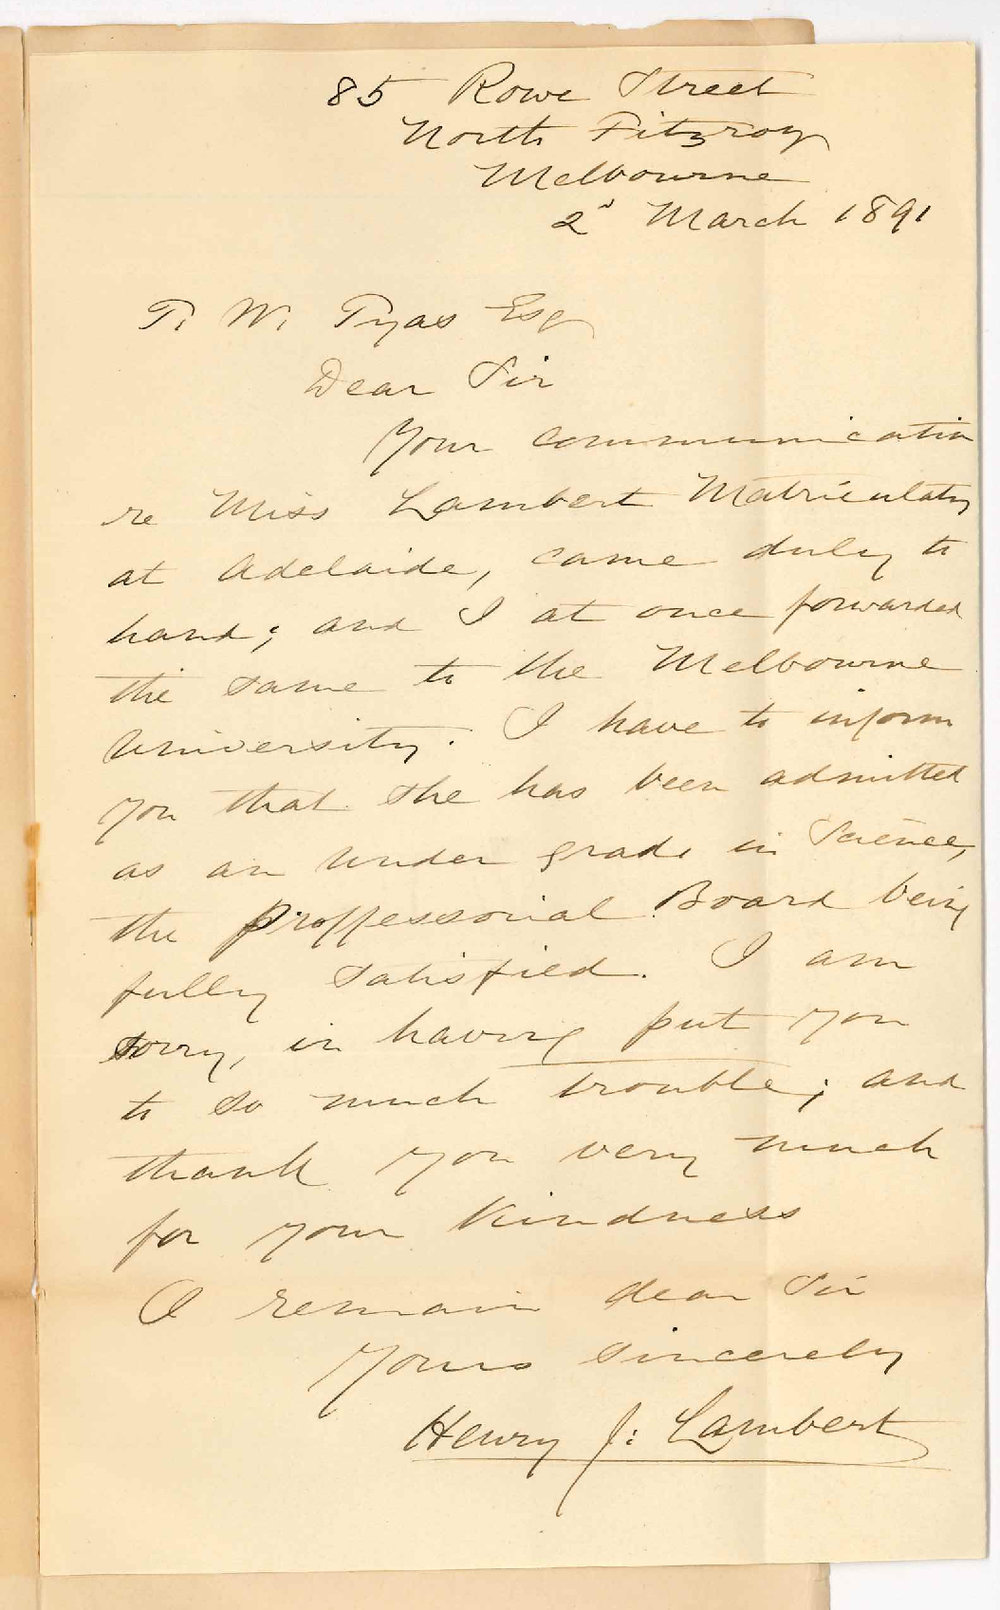 85 Rowe Street
North Fitzroy
Melbourne
2d March 1891
T. W. Tyas Esq
Dear Sir
Your communication
re Miss Lambert Matriculatg
at Adelaide, came duly to
hand; and I at once forwarded
the same to the Melbourne
University. I have to inform
you that she has been admitted
as an under grad. in Science,
the Proffessorial Board being
fully satisfied. I am
sorry, in having put you
to so much trouble; and
thank you very much
for your kindness
I remain dear Sir
Yours sincerely
Henry J: Lambert